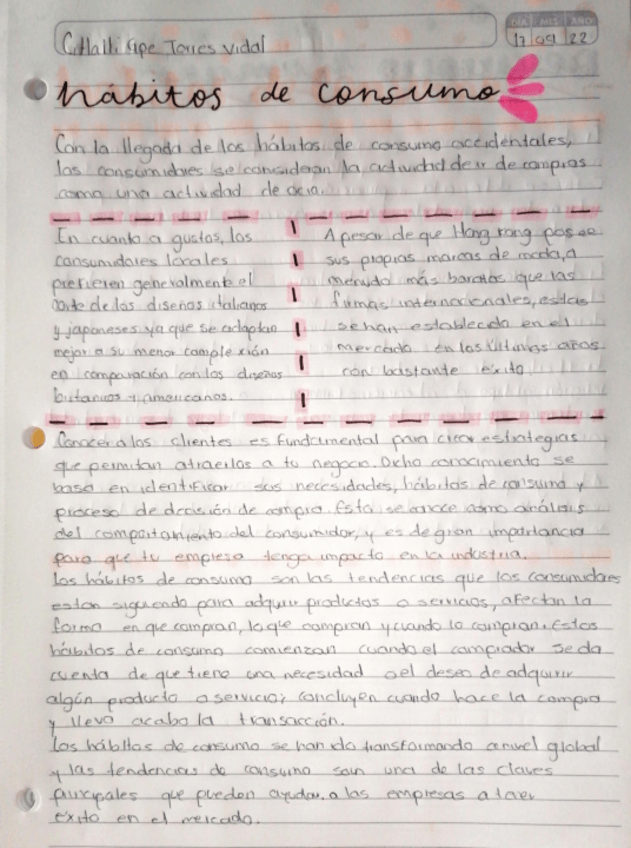 Citlalli Gpe Torres Vidal
DÍA MES AÑO
17 09 22
hábitos de consumo
Con la llegada de los hábitos de consumo occidentales,
los consumidores se consideran la actividad de ir de compras
como una actividad de ocio.
En cuanto a gustos, los
consumidores locales
prefieren generalmente el
corte de los diseños italianos
y japoneses ya que se adaptan
mejor a su menor complexión
en comparación con los diseños
británicos y americanos.
A pesar de que Hong Kong posee
sus propias marcas de moda, a
menudo más baratas que las
firmas internacionales, estas
se han establecido en el
mercado en los últimos años
con bastante éxito
Conocer a los clientes es fundamental para crear estrategias
que permitan atraerlos a tu negocio. Dicho conocimiento se
basa en identificar sus necesidades, hábitos de consumo y
proceso de decisión de compra. Esto se conoce como análisis
del comportamiento del consumidor, y es de gran importancia
para que tu empresa tenga impacto en la industria.
Los hábitos de consumo son las tendencias que los consumidores
estan siguiendo para adquirir productos o servicios, afectan la
forma en que compran, lo que compran y cuando lo compran. Estos
hábitos de consumo comienzan cuando el comprador se da
cuenta de que tiene una necesidad o el deseo de adquirir
algún producto o servicio; concluyen cuando hace la compra
y lleva acabo la transacción.
Los hábitos de consumo se han ido transformando a nivel global
y las tendencias de consumo son una de las claves
principales que pueden ayudar a las empresas a tener
éxito en el mercado.